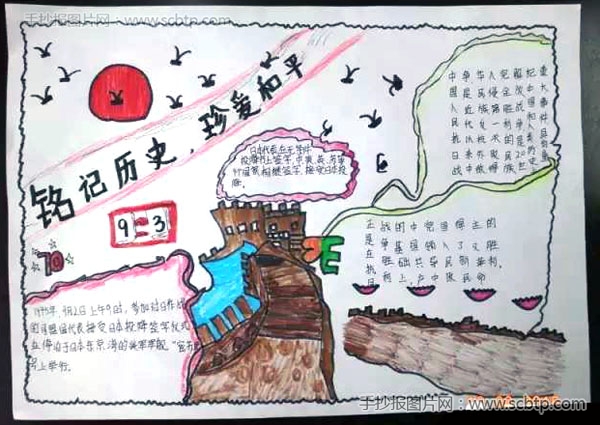 手抄报图片网:www.scbtp.com
铭记历史,珍爱和平
日本代表在无条件
投降书上签字,中、美、英、苏等
9个国家相继签字,接受日本投
降。
中国人民抗日战
争是近代以来中
华民族抗击外敌
入侵第一次取得
完全胜利的民族
解放战争,是20世
重大事件具有重
9=3
70
正是在抗日
战争胜利
的基础上,
1945年,9月2日上午9时,参加对日作战
的同盟国代表接受日本投降签字仪式
在停泊于日本东京湾的美军军舰"密苏里"
号上举行。
手抄报图片网:www.scbtp.com